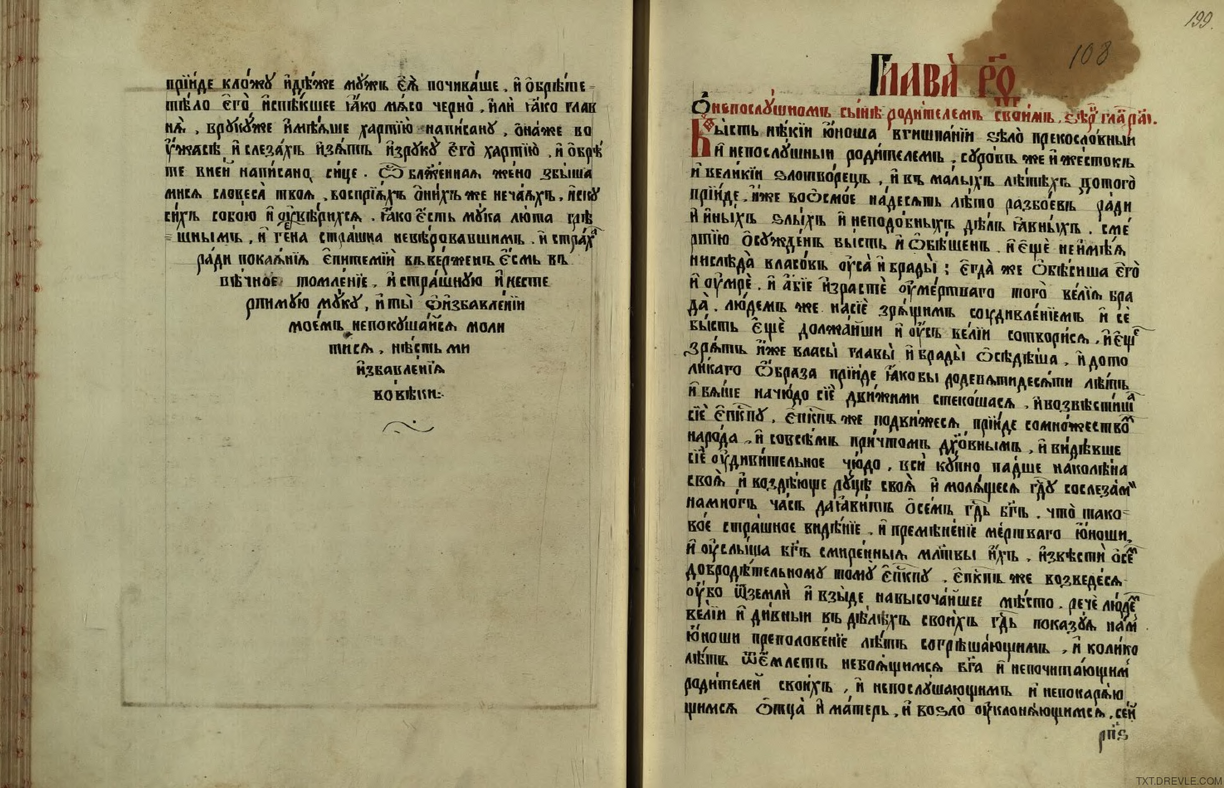 прїиде кло́жꙋ и҆дѣ́же мꙋ́жъ є҆ѧ̀ почива́ше . и҆ ѡ҆брѣ́те
тѣ́ло є҆гѡ̀ и҆спе́кшее ꙗ҆́кѡ мѧ́со черно̀ , и҆лѝ ꙗ҆́кѡ глав
нѧ̀ , врꙋкꙋ́же и҆мѣ́ѧше ха́ртїю написа́нꙋ , ѻ҆на́же во
ᲂу҆́жасѣ , и҆ слеза́хъ и҆зѧ́тъ и҆зрꙋкꙋ̀ є҆гѡ̀ ха́ртїю . и҆ ѡ҆брѣ́
те вне́й написано̀ си́це . Ѽ блаже́ннаѧ жено̀ збы́ша
мисѧ словеса̀ твоѧ̀ , воспрїѧ́хъ ѻ҆ни́хъ же неча́ѧхъ , и҆скꙋ
си́хъ собо́ю и҆ ᲂу҆вѣ́рихсѧ . ꙗ҆́кѡ є҆́сть мꙋ́ка люта̀ грѣ̀
шнымъ , и҆ гена стра́шна невѣ́ровавшимъ . и҆ стра́х
ради покаѧ́нїѧ є҆питемі́й вве́рженъ є҆́смь въ
вѣ́чное томле́нїе , и҆ стра́шнꙋю и҆ несте
рпи́мꙋю мꙋ́кꙋ , и҆ ты̀ ѽ и҆збавле́нїи
мое́мъ непокꙋша́йсѧ моли
тисѧ , нѣ́сть ми
и҆збавле́нїѧ
во вѣ́ки :
199.
108
Глава̀ р҃о
Ѻ҆ непослꙋ́шномъ сы́нѣ роди́телемъ свои́мъ .
Бы́сть нѣ́кїи ю҆́ноша вгишпа́нїи ѕѣлѡ̀ прекосло́вныи
и҆ непослꙋ́шныи роди́телемъ , сꙋро́въ же и҆ жесто́къ
и҆ вели́кїи ѕлотво́рецъ , и҆ въ ма́лыхъ лѣ́тѣхъ дотогѡ̀
прїи́де , и҆́же воѻсмо́е на́десѧть лѣ́то разбо́евъ ра́ди
и҆ и҆ны́хъ ѕлы́хъ и҆ неподо́бныхъ дѣ́лъ ꙗ҆́вныхъ . сме́
ртїю ѡ҆сꙋжде́нъ бы́сть и҆ ѡ҆бѣ́шенъ . и҆ є҆щѐ неимѣ́ѧ
нислѣ́да власо́въ ᲂу҆са̀ и҆ брады̀ ; є҆гда́ же ѡ҆бѣ́сиша є҆го̀
и҆ ᲂу҆́мре . и҆ а҆́бїе и҆зрастѐ ᲂу҆ме́ртваго того̀ ве́лїѧ бра
да̀ . лю́демъ же на сїѐ зрѧ́щимъ соудивле́нїемъ и҆ се
бы́сть є҆щѐ должа́йши и҆ ᲂу҆съ ве́лїи сотвори́сѧ . и҆ є҆щѐ
зрѧ́тъ и҆́же власы̀ главы̀ и҆ брады̀ ѡ҆сѣдѣ́ша , и҆ дото
лика́го ѡ҆́браза прїи́де ꙗ҆́кобы додевѧтидесѧ́ти лѣ́тъ
и҆ вѧ́ше начю́до сїѐ дви́жими стеко́шасѧ . и҆ возвѣсти́ша
сїѐ є҆пⷭ҇кпꙋ , є҆пⷭ҇кпъ же подви́жесѧ , прїи́де сомно́жество
наро́да , и҆ совсѣ́мъ при́чтомъ дꙋхо́внымъ , и҆ ви́дѣвше
сїѐ ᲂу҆диви́тельное чю́до , всѝ кꙋ́пно па́дше накѡлѣ́на
своѧ̀ , и҆ воздѣ́юще рꙋ́цѣ своѧ̀ и҆ молѧ́щесѧ гдⷭ҇ꙋ сослеза́ми
намно́гъ ча́съ даꙗ҆ви́тъ ѡ҆се́мъ гдⷭ҇ь бг҃ъ . что̀ тако
во́е стра́шное видѣ́нїе , и҆ премѣне́нїе ме́ртваго ю҆́ноши ,
и҆ ᲂу҆слы́ша бг҃ъ смире́нныѧ мл҃твы и҆́хъ , и҆звѣстѝ ѡ҆се́мъ
добродѣ́тельномꙋ томꙋ̀ є҆пⷭ҇кпꙋ . є҆пⷭ҇кпъ же возведе́сѧ
ᲂу҆́бо ѿземлѝ и҆ взы́де навысоча́йшее мѣ́сто . речѐ лю́демъ
ве́лїи и҆ ди́вныи въ дѣ́лѣхъ свои́хъ гдⷭ҇ь показꙋ́ѧ на́мъ
ю҆́ноши преполове́нїе лѣ́тъ согрѣша́ющимъ , и҆ коли́ко
лѣ́тъ ѿе́млетъ небоѧ́щимсѧ бг҃а и҆ непочита́ющимъ
роди́телей свои́хъ , и҆ непослꙋ́шающимъ и҆ непокарѧ́ю
щимсѧ ѻ҆тца̀ и҆ ма́терь , и҆ возло̀ ᲂу҆клонѧ́ющимсѧ . се́й
рп҃ѕ
TXT.DREVLE.COM